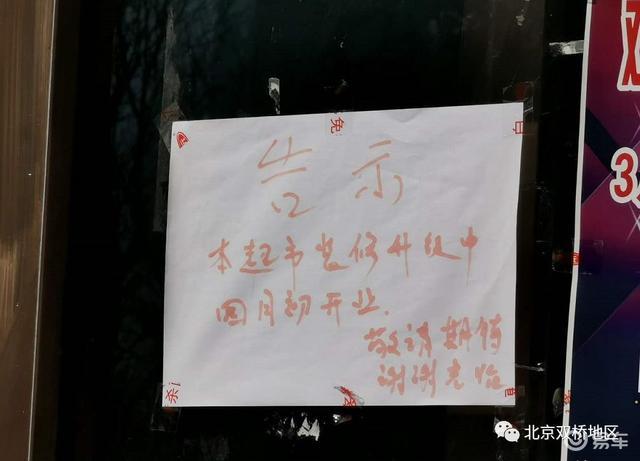 告示
本超市装修升级中
四月初开业.
敬请期待
谢谢光临
免
3
北京双桥地区
易车